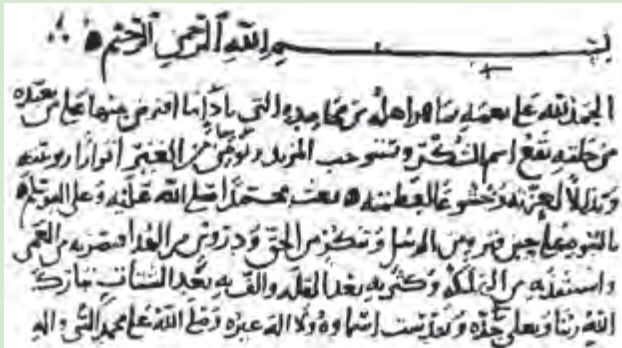 بسم الله الرحمن الرحيم
الحمد لله على نعمه بما هو اهله من محامده التي بادائها افترض منها على من تعبده
من خلقه يقع اسم الشكر وتستوجب المزيد ونومن من الغير اقرارا بربوبيته
وتذللا لعزته وخشوعا لعظمته بعث محمدا صلى الله عليه وعلى اله وسلم
بالنبوة على حين فترة من الرسل وتنكر من الحق ودروس من الهدا فبصر به من العمى
واستنقذ به من الهلكة وكثر به بعد القلة والف به بعد الشتات تبارك
الله ربنا وتعالى جده وتقدست اسماوه ولا اله غيره وصلى الله على محمد النبي واله